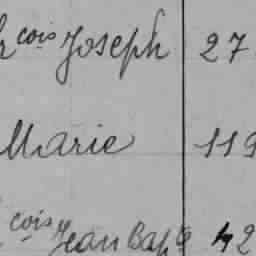 çois Joseph 27
Marie 119
çois Jean Bapte 42